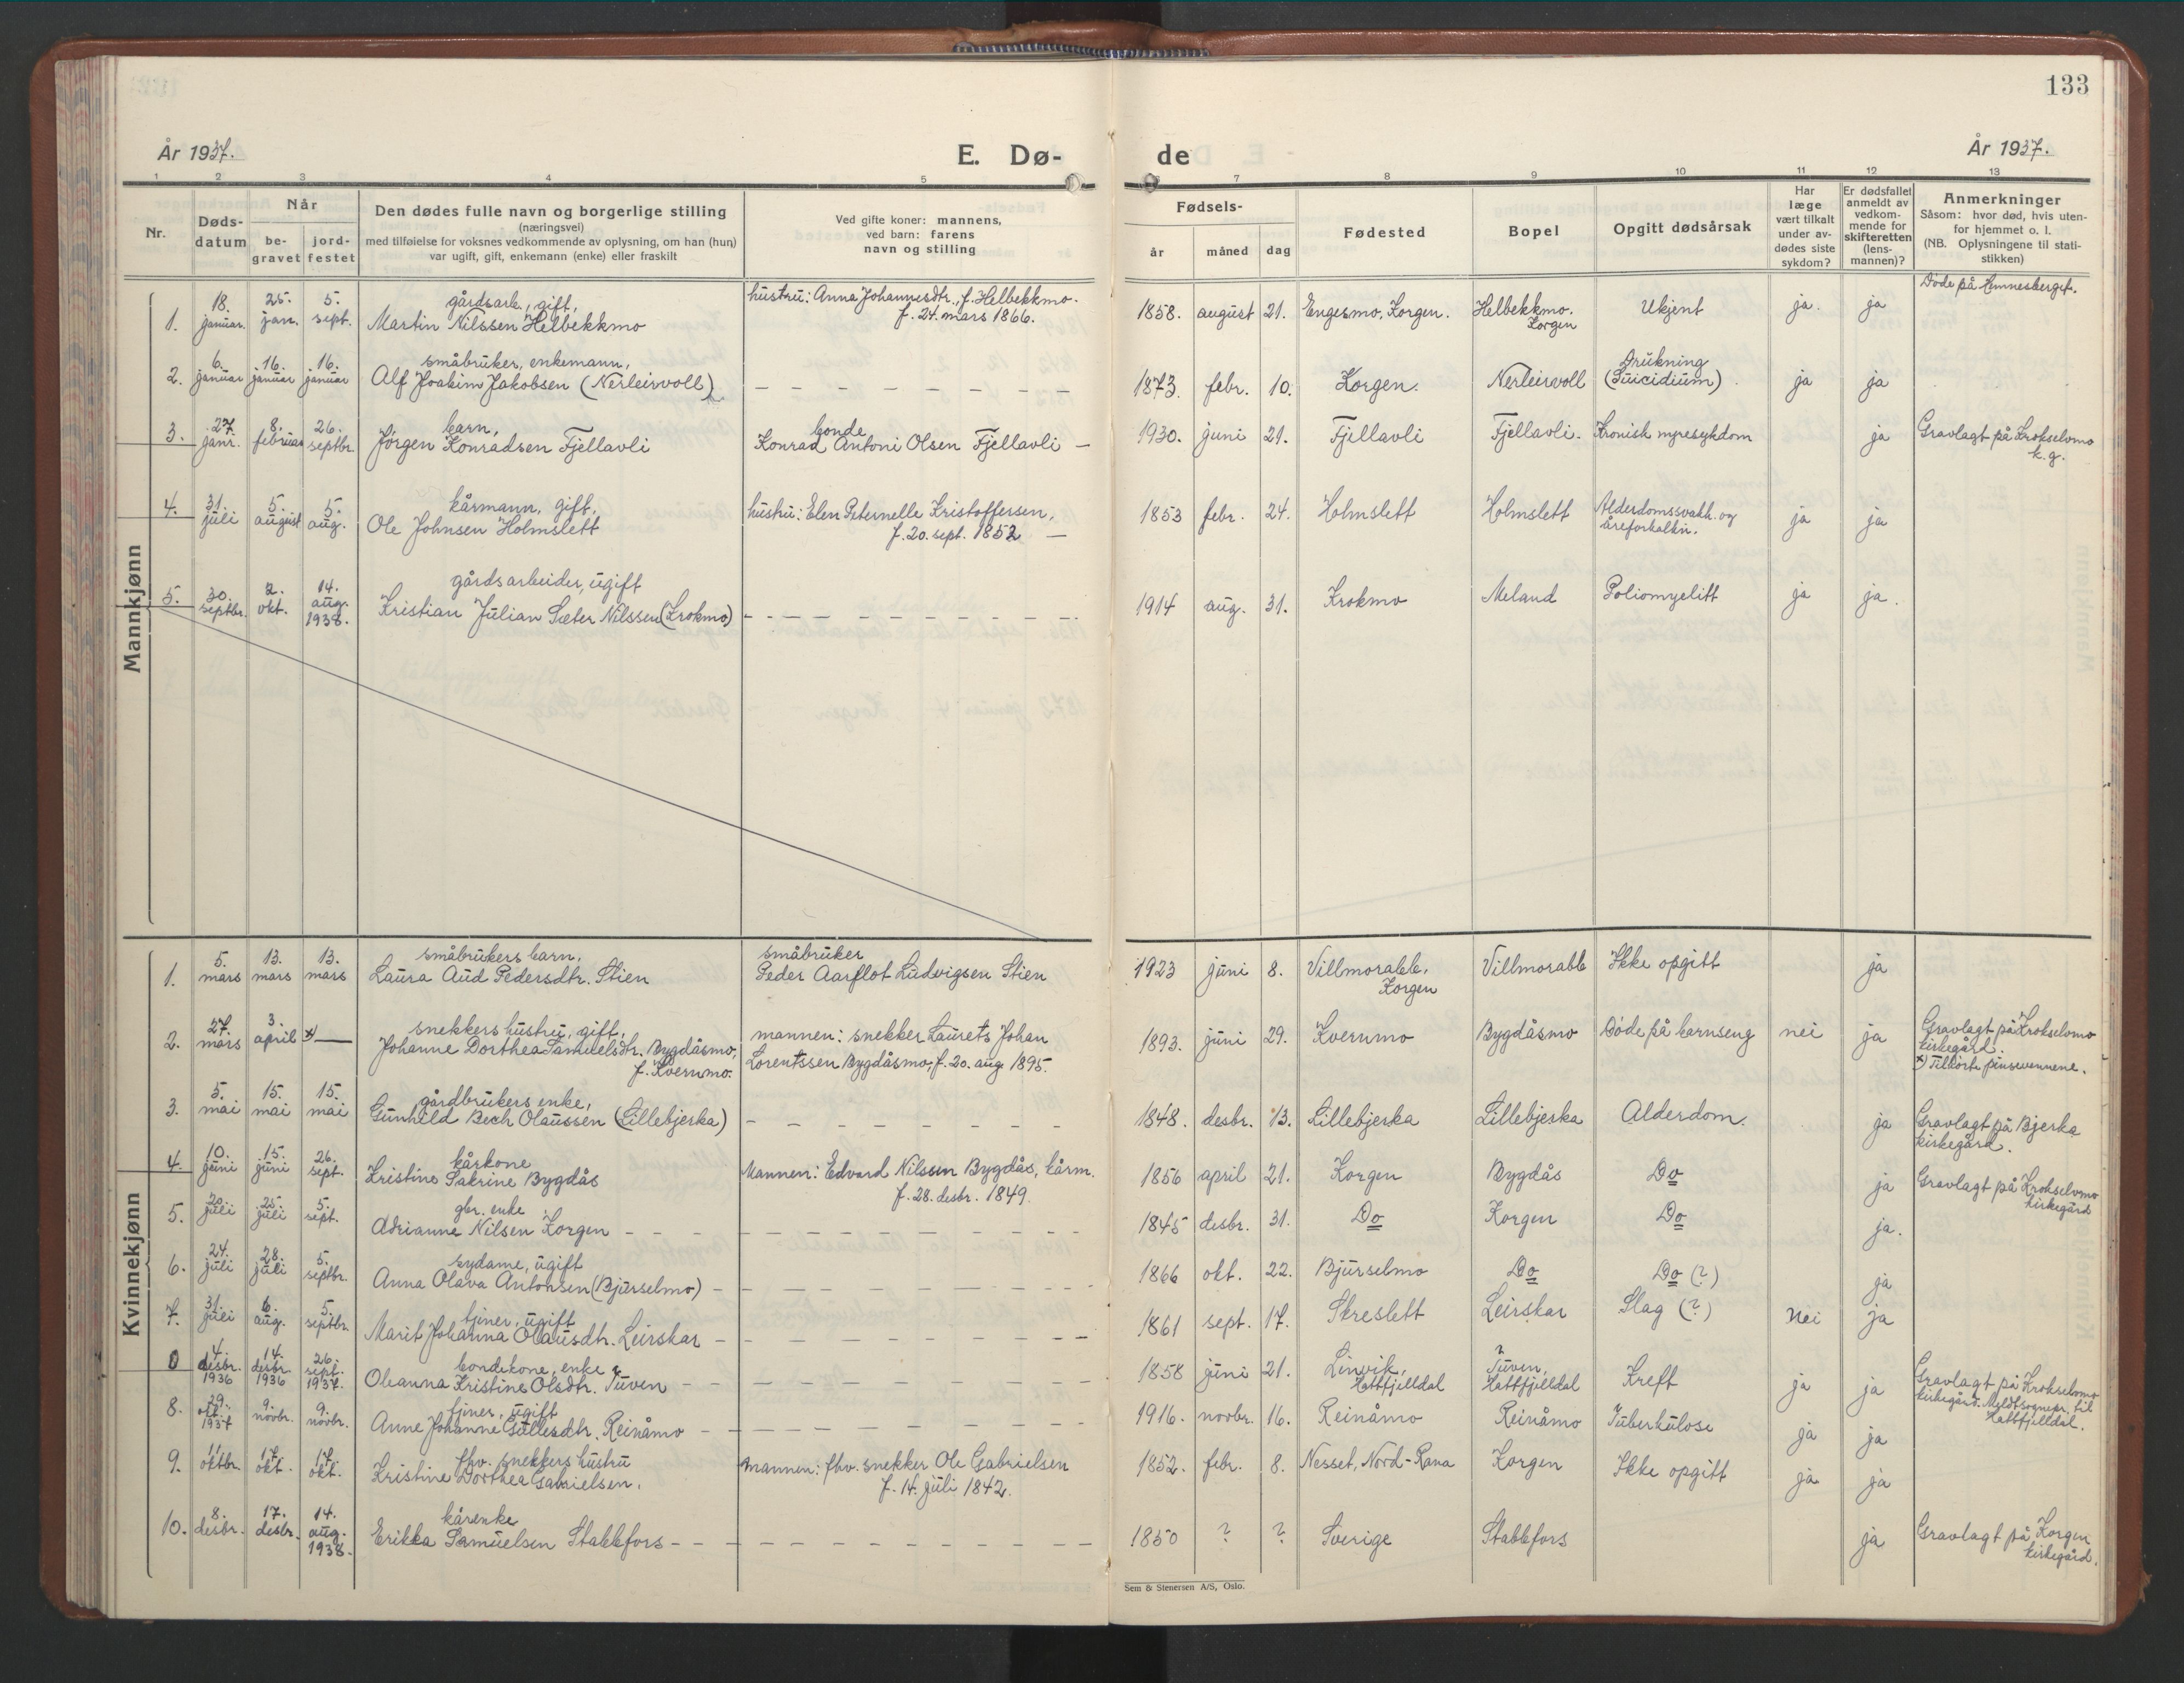 133
År 1937.
E. Dø-
de
År 1937.
1 2 3 4 5 6 7 8 9 10 11 12 13
Nr.
Døds-
datum
Når
be-
gravet
jord-
festet
Den dødes fulle navn og borgerlige stilling
(næringsvei)
med tilføielse for voksnes vedkommende av oplysning, om han (hun)
var ugift, gift, enkemann (enke) eller fraskilt
Ved gifte koner: mannens,
ved barn: farens
navn og stilling
Fødsels-
år
måned
dag
Fødested
Bopel
Opgitt dødsårsak
Har
læge
vært tilkalt
under av-
dødes siste
sykdom?
Er dødsfallet
anmeldt av
vedkom-
mende for
skifteretten
(lens-
mannen)?
Anmerkninger
Såsom: hvor død, hvis uten-
for hjemmet o. l.
(NB. Oplysningene til stati-
stikken)
Mannkjønn
1. 18. januar. 25. jan. 5. sept. gårdsarb., gift,
Martin Nilssen Helbekkmo
hustru: Anna Johannesdtr., f. Helbekkmo.
f. 24. mars 1866.
1858. august 21. Engesmo, Korgen. Helbekkmo. Korgen Ukjent ja. ja Døde på Hemnesberget.
2. 6. januar 16. januar 16. januar småbruker, enkemann,
Alf Joakim Jakobsen (Nerleirvoll)
1873. febr. 10. Korgen. Nerleirvoll Drukning (Suicidium). ja ja
3. 27. janr. 8. februar 26. septbr. barn,
Jørgen Konradsen Fjellavli
bonde
Konrad Antoni Olsen Fjellavli —
1930. juni 21. Fjellavli Fjellavli. Kronisk nyresykdom ja Gravlagt på Krokselvmo
k.g.
4. 31. juli 5. august 5. aug. kårmann, gift,
Ole Johnsen Holmslett
hustru: Elen Peternelle Kristoffersen,
f. 20. sept. 1852 —
1853 febr. 24. Holmslett Holmslett Alderdomssvakh. og
åreforkalkn. ja ja
5. 30. septbr. 2. okt. 14. aug. 1938. gårdsarbeider, ugift
Kristian Julian Sæter Nilssen (Krokmo)
1914 aug. 31. Krokmo Meland Poliomyelitt ja ja.
Kvinnekjønn
1. 5. mars 13. mars 13. mars småbrukers barn,
Laura Aud Pedersdtr. Stien
småbruker
Peder Aarflot Ludvigsen Stien
1923 juni 8. Villmorabb, Korgen Villmorabb Ikke opgitt ja
2. 27. mars 3. april x) — snekkers hustru, gift,
Johanne Dorthea Samuelsdtr. Bygdåsmo,
f. Kvernmo.
mannen: snekker Laurets Johan
Lorentssen Bygdåsmo, f. 20. aug. 1895.
1893. juni 29. Kvernmo Bygdåsmo Døde på barnseng nei ja Gravlagt på Krokselvmo
kirkegård.
x) Tilhørte pinsevennene.
3. 5. mai 15. mai 15. mai gårdbrukers enke,
Gunhild Bech Olaussen (Lillebjerka)
1848. desbr. 13. Lillebjerka Lillebjerka Alderdom. ja Gravlagt på Bjerka
kirkegård.
4. 10. juni 15. juni 26. sept. kårkone
Kristine Sakrine Bygdås
Mannen: Edvard Nilssen Bygdås, kårm.
f. 28. desbr. 1849.
1856 april 21. Korgen Bygdås Do ja Gravlagt på Krokselvmo
kirkegård
5. 20. juli 25. juli 5. sept. gbr. enke
Adrianne Nilsen Korgen
1845 desbr. 31. Do Korgen Do ja.
6. 24. juli 28. juli 5. septbr. sydame, ugift
Anna Olava Antonsen (Bjurselmo)
1866 okt. 22. Bjurselmo Do Do (?) ja
7. 31. juli 6. aug. 5. septbr. tjener, ugift
Marit Johanna Olausdtr. Leirskar
1861 sept. 17. Skreslett Leirskar Slag (?) Nei ja
0 4. desbr. 1936 14. desbr. 1936 26. sept. 1937. bondekone, enke
Oleanna Kristine Olsdtr. Tuven
1858 juni 21. Linvik, Hattfjelldal Tuven, Hattfjelldal Kreft ja ja Gravlagt på Krokselvmo
kirkegård. Meldt sognepr. til
Hattfjelldal.
8. 29. okt. 1937 9. novbr. 9. novbr. tjener, ugift
Anne Johanne Gullesdtr. Reinåmo
1916. novbr. 16. Reinåmo Reinåmo Tuberkulose ja ja
9. 11 oktbr. 17. okt. 17. okt. fhv. snekkers hustru
Kristine Dorthea Gabrielsen.
mannen: fhv. snekker Ole Gabrielsen
f. 14. juli 1842.
1852. febr. 8. Nesset, Nord-Rana Korgen Ikke opgitt ja ja
10. 8. desbr. 17. desbr. 14. aug. 1938. kårenke
Erikka Samuelsen Stabbfors
1850 ? ? Sverige Stabbfors ja Gravlagt på Korgen
kirkegård.
Sem & Stenersen A/S, Oslo.